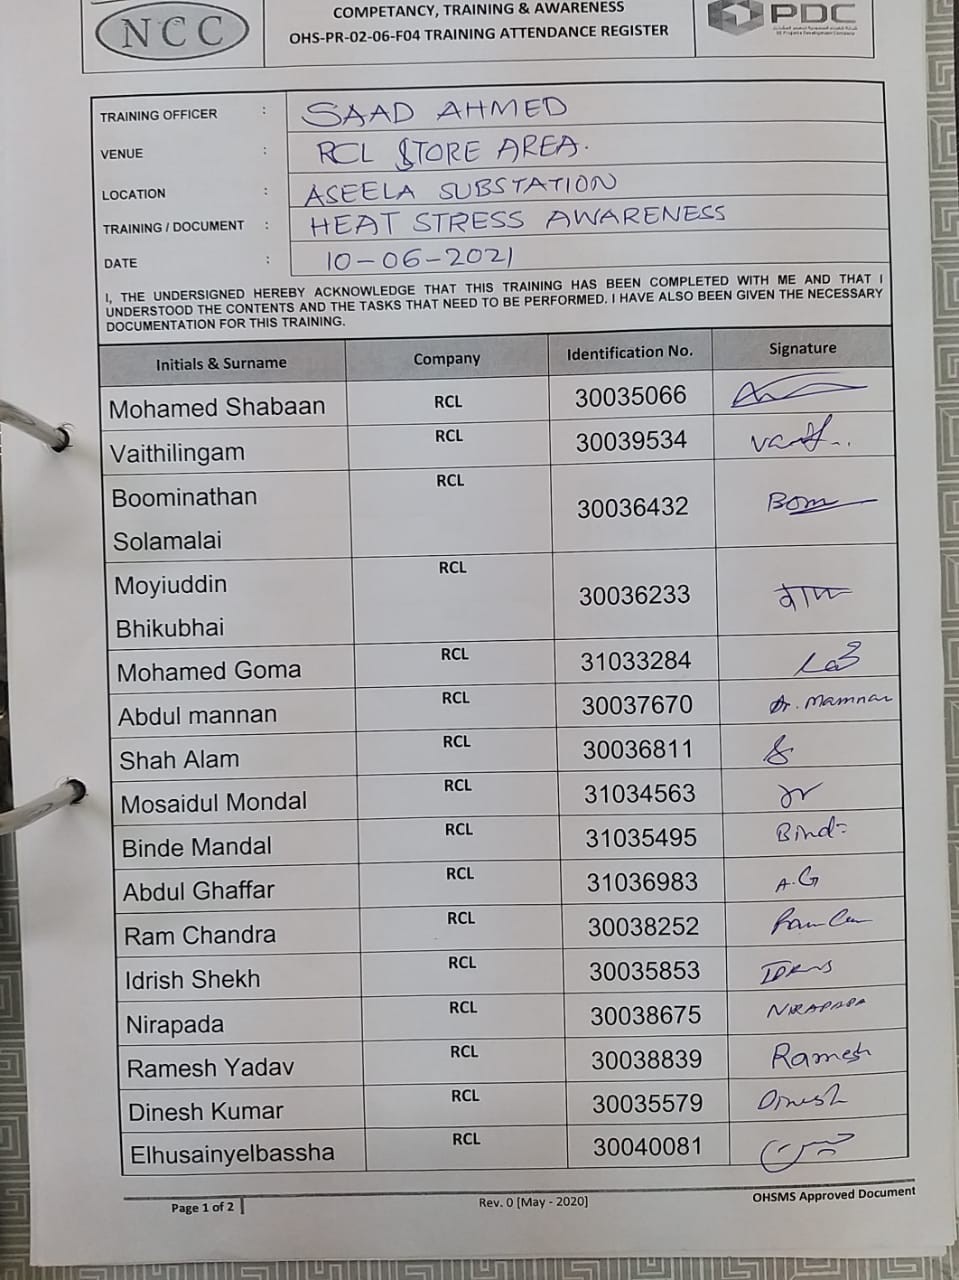 NCC
COMPETANCY, TRAINING & AWARENESS
OHS-PR-02-06-F04 TRAINING ATTENDANCE REGISTER
PDC
TRAINING OFFICER : SAAD AHMED
VENUE : RCL STORE AREA.
LOCATION : ASEELA SUBSTATION
TRAINING / DOCUMENT : HEAT STRESS AWARENESS
DATE : 10-06-2021
I, THE UNDERSIGNED HEREBY ACKNOWLEDGE THAT THIS TRAINING HAS BEEN COMPLETED WITH ME AND THAT I
UNDERSTOOD THE CONTENTS AND THE TASKS THAT NEED TO BE PERFORMED. I HAVE ALSO BEEN GIVEN THE NECESSARY
DOCUMENTATION FOR THIS TRAINING.
Initials & Surname Company Identification No. Signature
Mohamed Shabaan RCL 30035066
Vaithilingam RCL 30039534
Boominathan RCL 30036432 Bom
Solamalai
Moyiuddin RCL 30036233
Bhikubhai
Mohamed Goma RCL 31033284
Abdul mannan RCL 30037670 Mamnan
Shah Alam RCL 30036811
Mosaidul Mondal RCL 31034563
Binde Mandal RCL 31035495 Bind
Abdul Ghaffar RCL 31036983 A.G
Ram Chandra RCL 30038252
Idrish Shekh RCL 30035853
Nirapada RCL 30038675 NIRAPADA
Ramesh Yadav RCL 30038839 Ramesh
Dinesh Kumar RCL 30035579 Dinesh
Elhusainyelbassha RCL 30040081
Page 1 of 2 Rev. 0 [May - 2020] OHSMS Approved Document